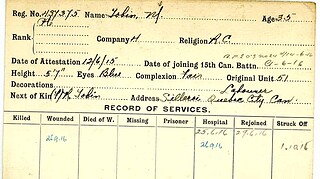 Reg. No. 437375 Name Tobin, M. Age 35
Rank Company H Religion R.C.
Date of Attestation 12/6/15 Date of joining 15th Can. Battn. 11-6-16
Height 5'7" Eyes Blue Complexion Fair Original Unit 51
Decorations Labourer
Next of Kin Tobin Address Sillery Quebec City Can.
RECORD OF SERVICES.
Killed Wounded Died of W. Missing Prisoner Hospital Rejoined Struck Off
25.6.16 27.6.16
26.9.16 26.9.16 1.10.16